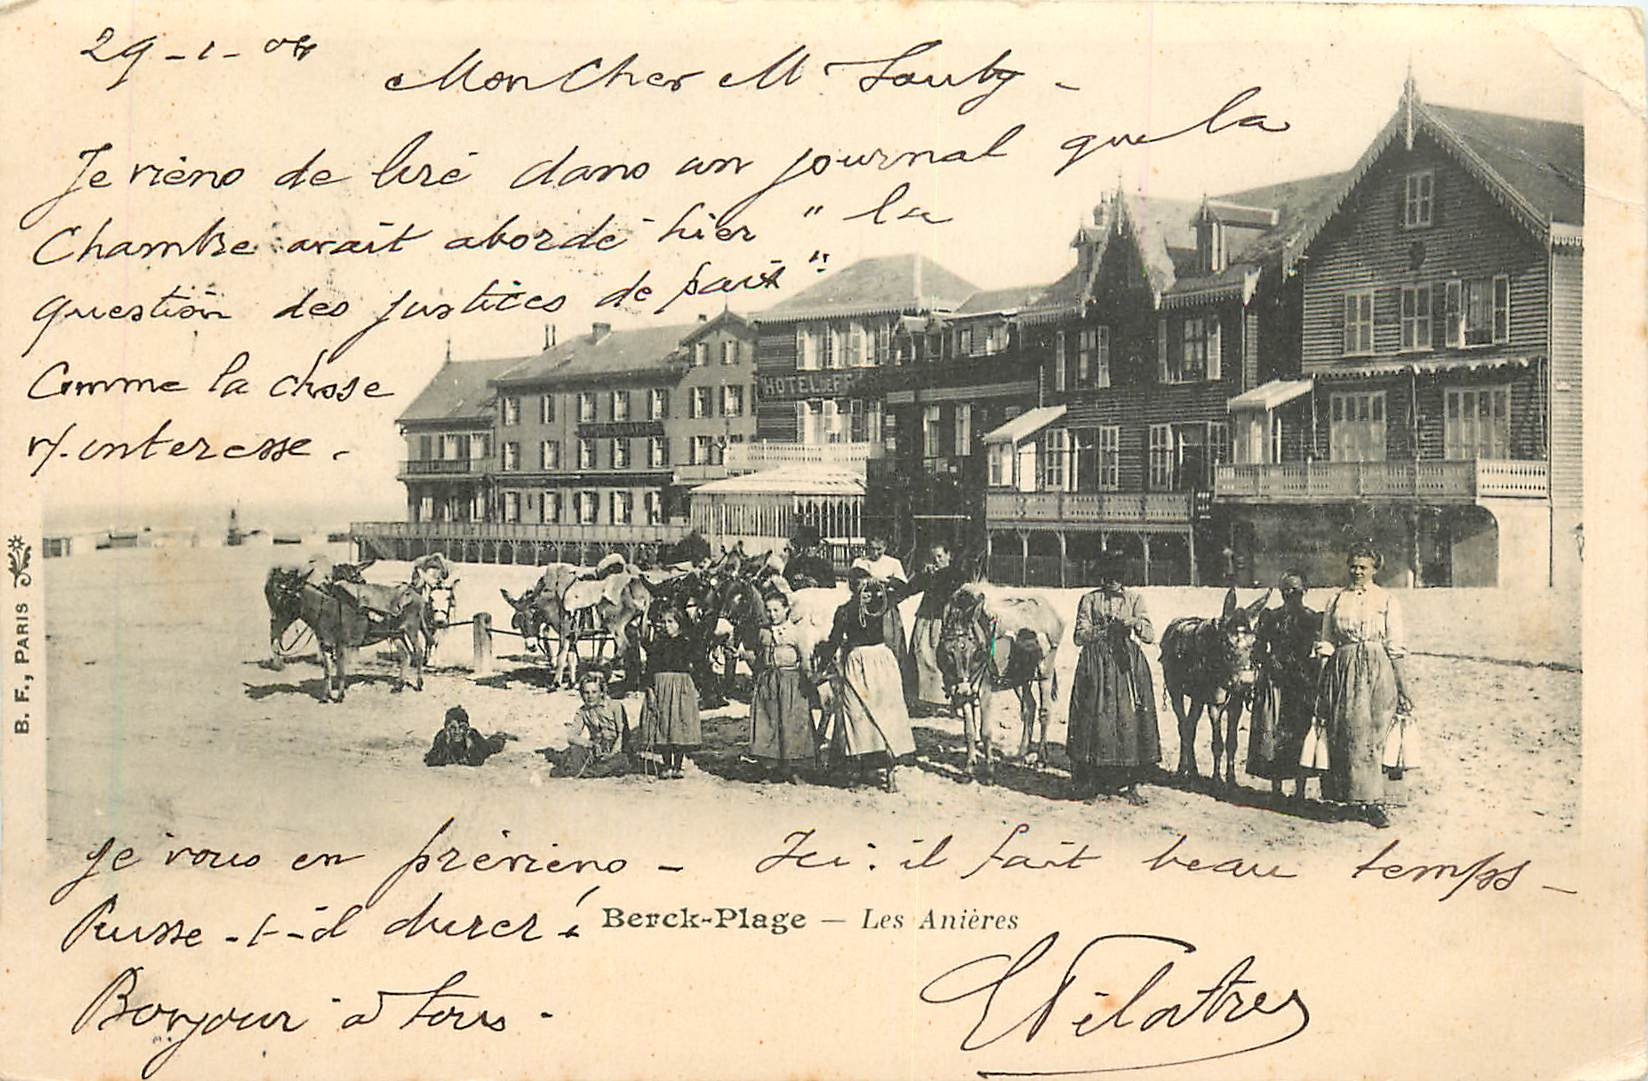 29-1-04
Mon Cher M. Sauty -
Je viens de lire dans un journal que la
Chambre avait abordé hier " la
question des justices de paix "
Comme la chose
v/. interesse -
HOTEL DE FR
je vous en préviens - Ici: il fait beau temps -
Puisse-t-il durer!
Bonjour à tous -
Berck-Plage — Les Anières
B. F., PARIS